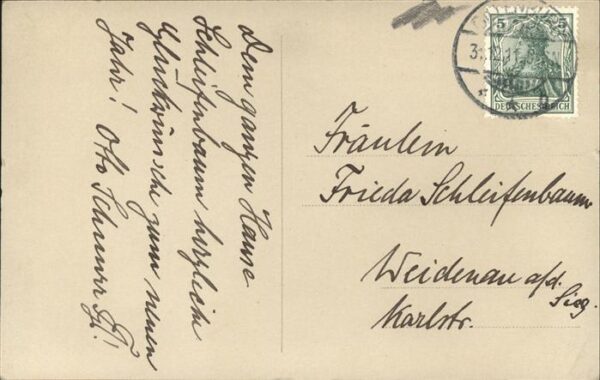 Dem ganzen Hause
Schleifenbaum herzliche
Glückwünsche zum neuen
Jahr! Otto
5 5
DEUTSCHES REICH
Fräulein
Frieda Schleifenbaum
Weidenau a/d. Sieg.
Karlstr.